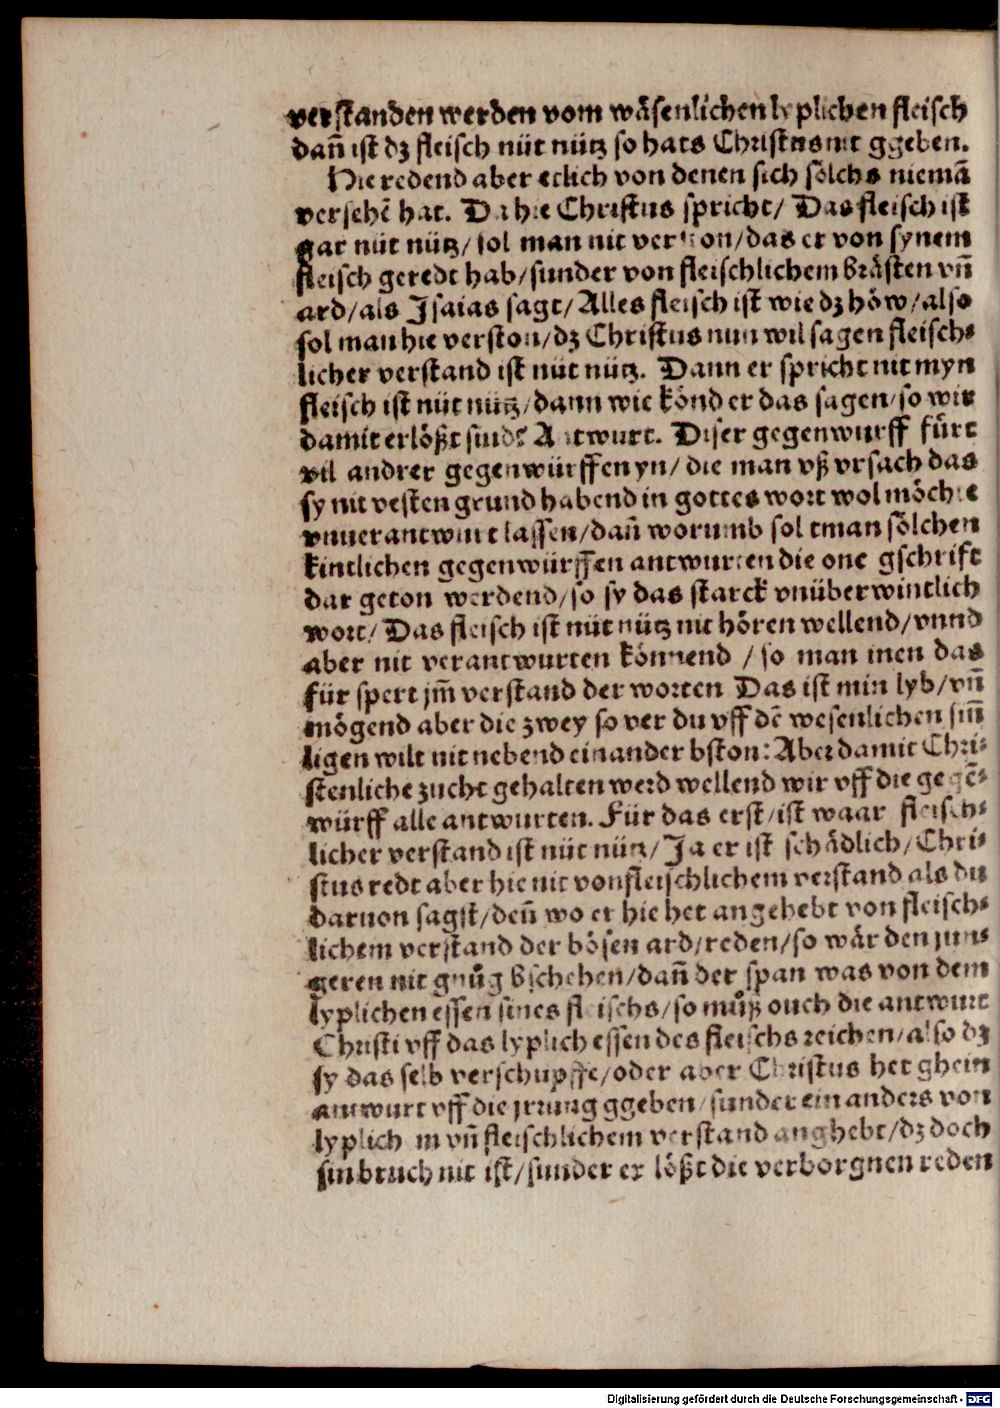 verstanden werden vom wäsenlichen lyplichen fleisch
dañ ist dz fleisch nüt nütz so hats Christus nit ggeben.
Hie redend aber etlich von denen sich sölchs niemã
versehẽ hat. Da hie Christus spricht/ Das fleisch ist
gar nüt nütz/ sol man nit verston/ das er von synem
fleisch geredt hab/ sunder von fleischlichem brästen vñ
ard/ als Isaias sagt/ Alles fleisch ist wie dz höw/ also
sol man hie verston/ dz Christus nun wil sagen fleisch⸗
licher verstand ist nüt nütz. Dann er spricht nit myn
fleisch ist nüt nütz/ dann wie könd er das sagen/ so wir
damit erlößt sind? Antwurt. Diser gegenwurff fürt
vil andrer gegenwürffen yn/ die man vß vrsach das
sy nit vesten grund habend in gottes wort wol möchte
vnuerantwurt lassen/ dañ worumb sol tman sölchen
kintlichen gegenwürffen antwurten die one gschrift
dar geton werdend/ so sy das starck vnüberwintlich
wort/ Das fleisch ist nüt nütz nit hören wellend/ vnnd
aber nit verantwurten könnend / so man inen das
für spert jm̃ verstand der worten Das ist min lyb/ vñ
mögend aber die zwey so ver du vff dẽ wesenlichen siñ
ligen wilt nit nebend einander bston: Aber damit Chri⸗
stenliche zucht gehalten werd wellend wir vff die gegẽ⸗
würff alle antwurten. Für das erst/ ist waar fleisch⸗
licher verstand ist nüt nütz/ Ja er ist schädlich/ Chri⸗
stus redt aber hie nit von fleischlichem verstand als du
daruon sagst/ deñ wo er hie het angehebt von fleisch⸗
lichem verstand der bösen ard/ reden/ so wär den jun⸗
geren nit gnuͤg bschehen/ dañ der span was von dem
lyplichen essen sines fleischs/ so muͤß ouch die antwurt
Christi vff das lyplich essen des fleischs reichen/ also dz
sy das selb verschupffe/ oder aber Christus het ghein
antwurt vff die jrrung ggeben/ sunder ein anders von
lyplich m vñ fleischlichem verstand anghebt/ dz doch
sin bruch nit ist/ sunder er lößt die verborgnen reden
Digitalisierung gefördert durch die Deutsche Forschungsgemeinschaft - DFG